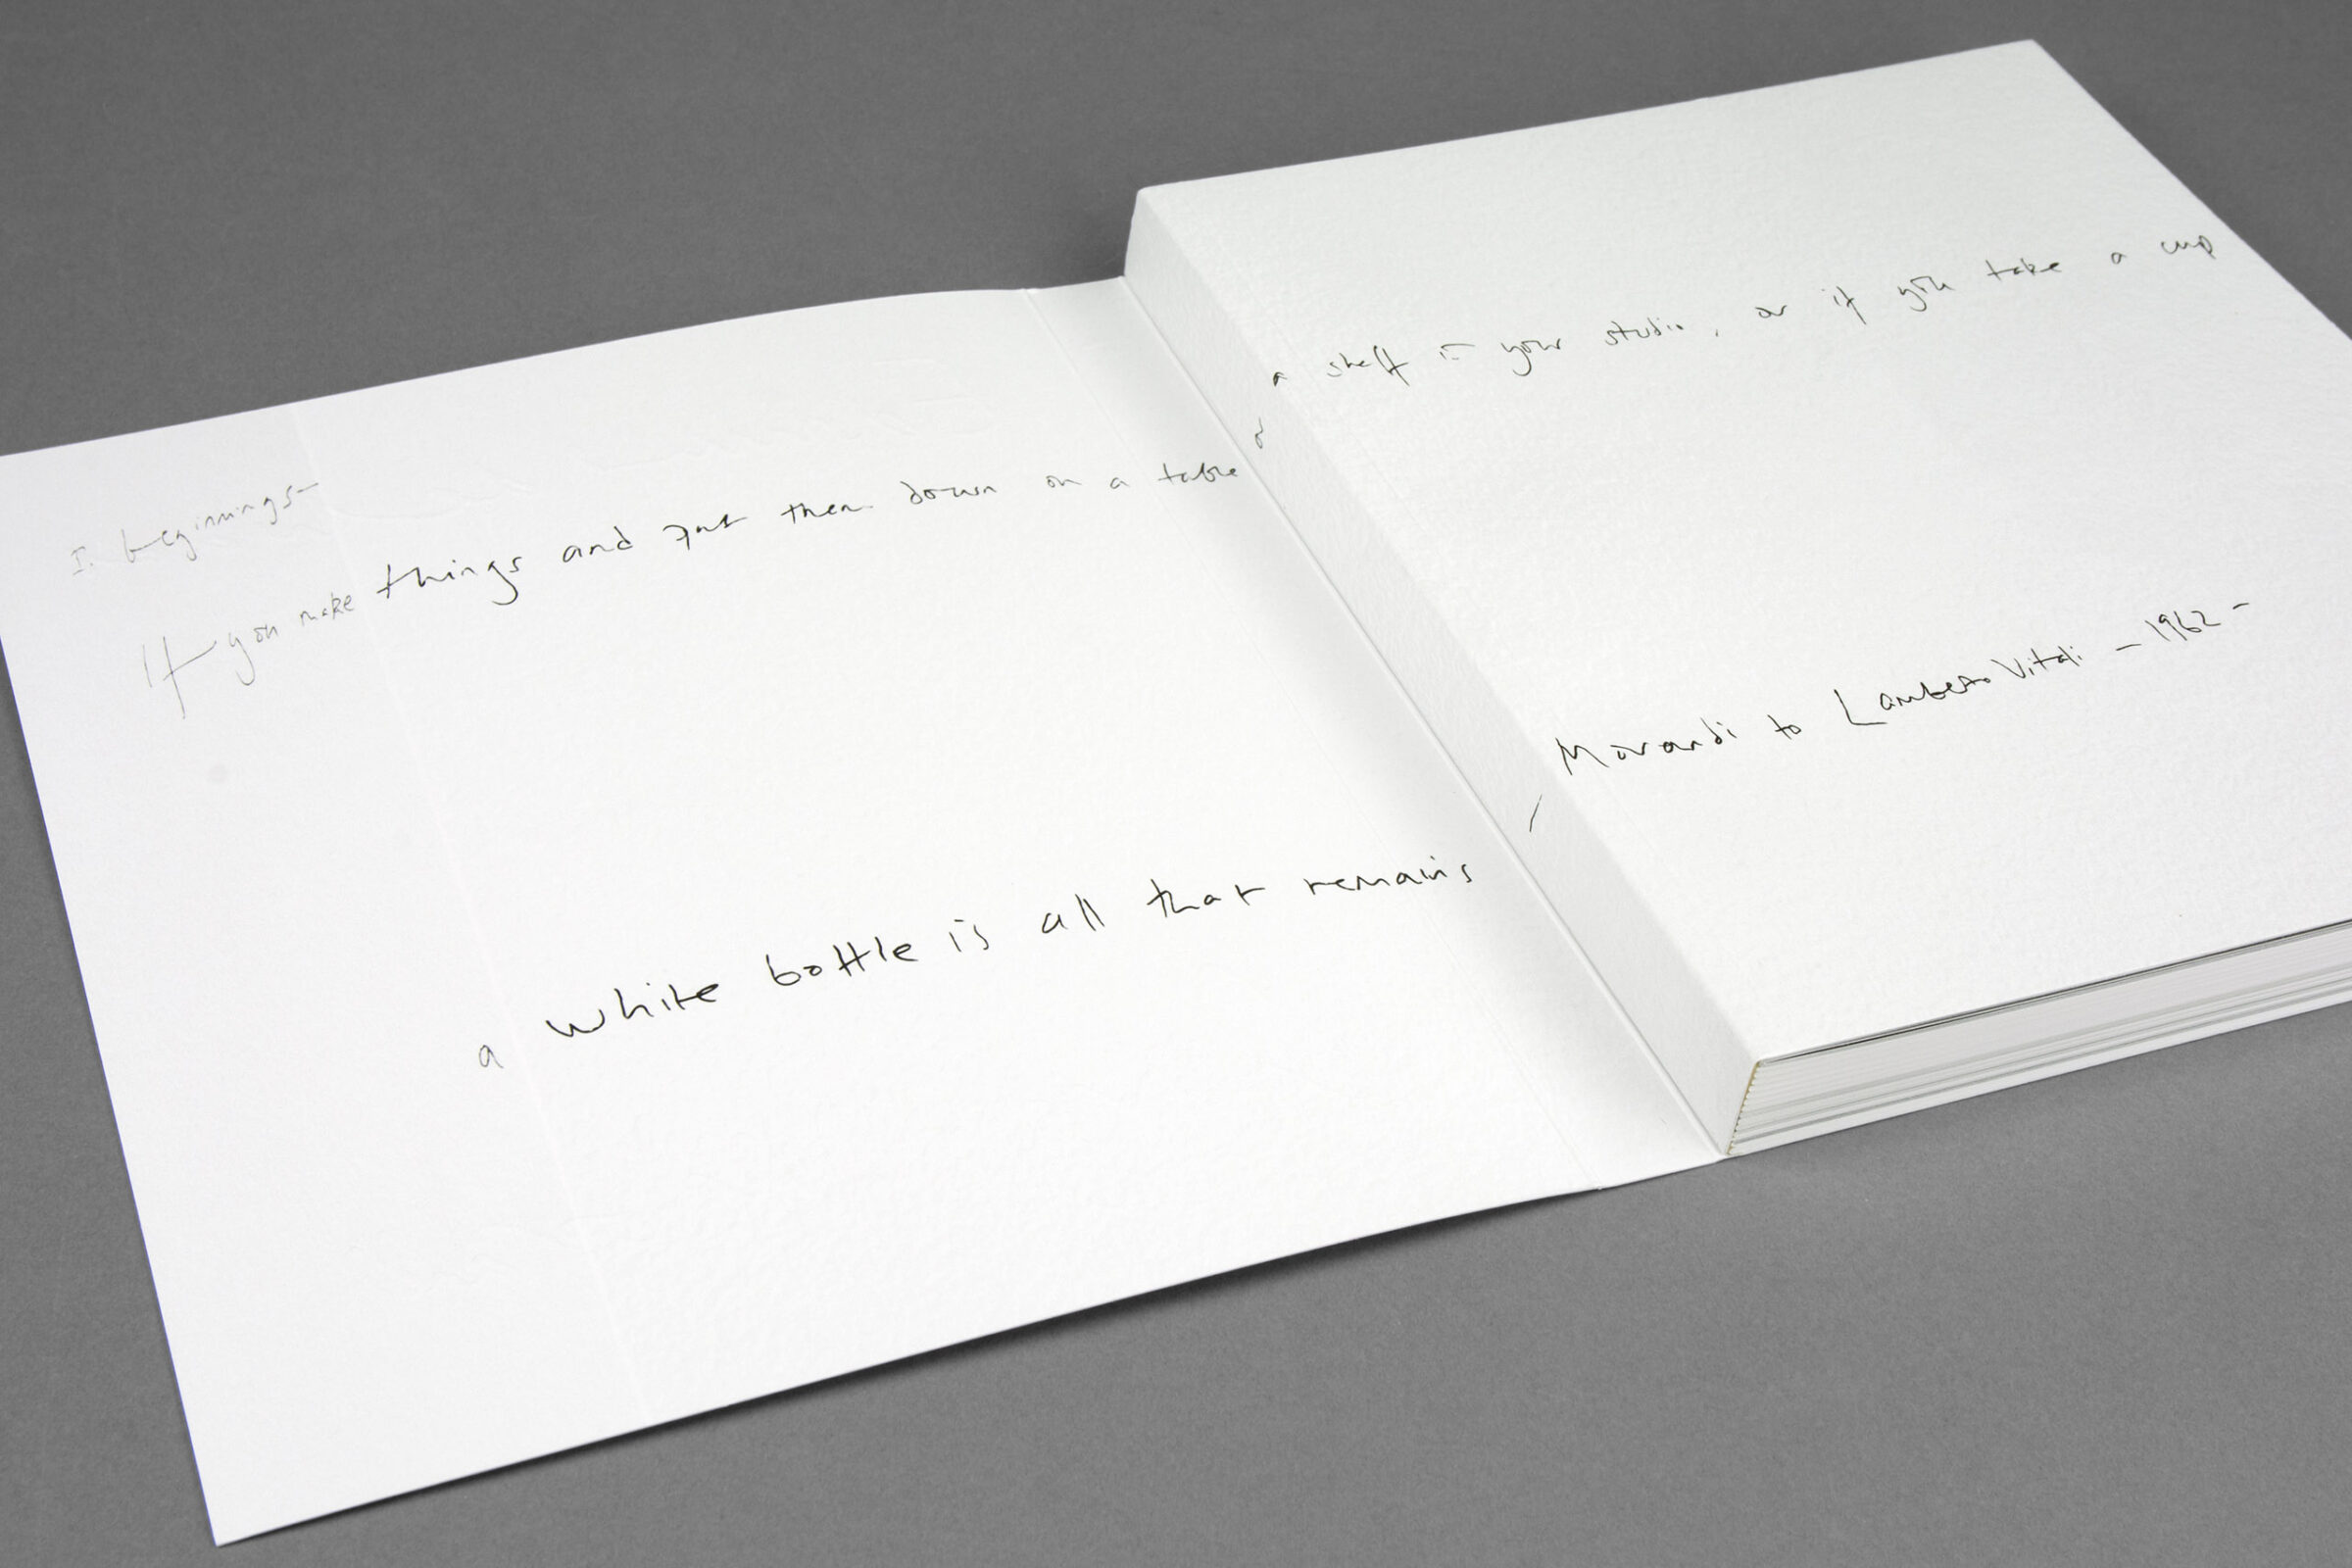 I. beginnings –
If you make things and put them down on a table or a shelf in your studio, or if you take a cup
a white bottle is all that remains / Morandi to Lamberto Vitali – 1962 –